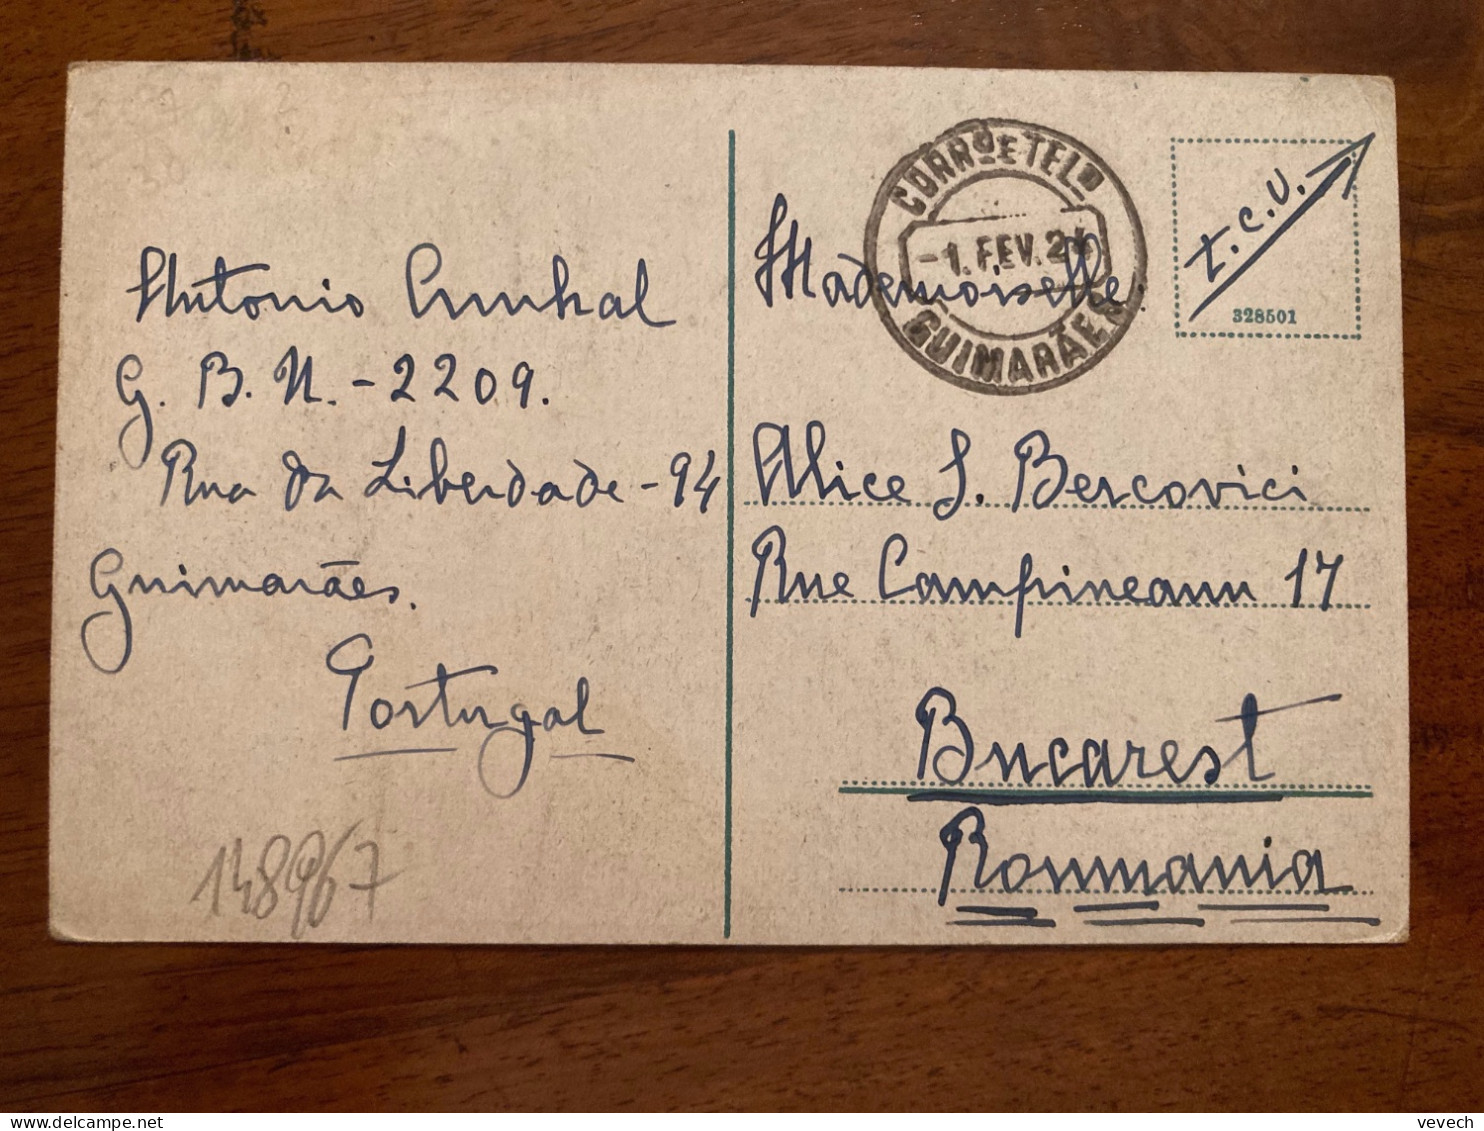 Antonio Cunhal
G. B. N. - 2209.
Rua da Liberdade - 94
Guimarães.
Portugal
148967
CORRº E TELº
-1. FEV. 24
GUIMARÃES
t.c.v.
328501
Mademoiselle
Alice J. Bercovici
Rue Campineanu 17
Bucarest
Roumania
vevech